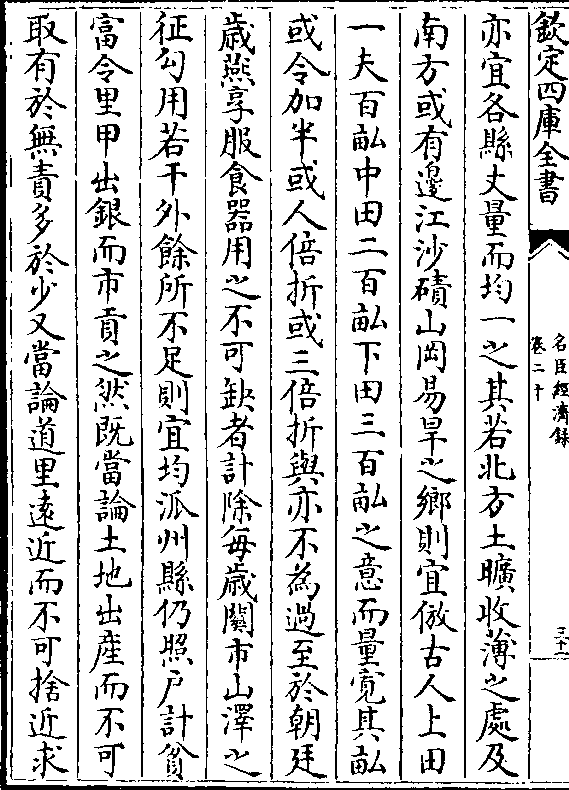 欽定四庫全書
名臣經濟錄
卷二十
三十一
亦宜各縣丈量而均一之其若北方土曠收薄之處及
南方或有邊江沙磧山岡易旱之鄉則宜倣古人上田
一夫百畝中田二百畝下田三百畝之意而量寛其畝
或令加半或人倍折或三倍折與亦不為過至於朝廷
歲燕享服食器用之不可缺者計除每歲關市山澤之
征勾用若干外餘所不足則宜均派州縣仍照戶計貧
富令里甲出銀而市貢之然既當論土地出產而不可
取有於無責多於少又當論道里遠近而不可捨近求